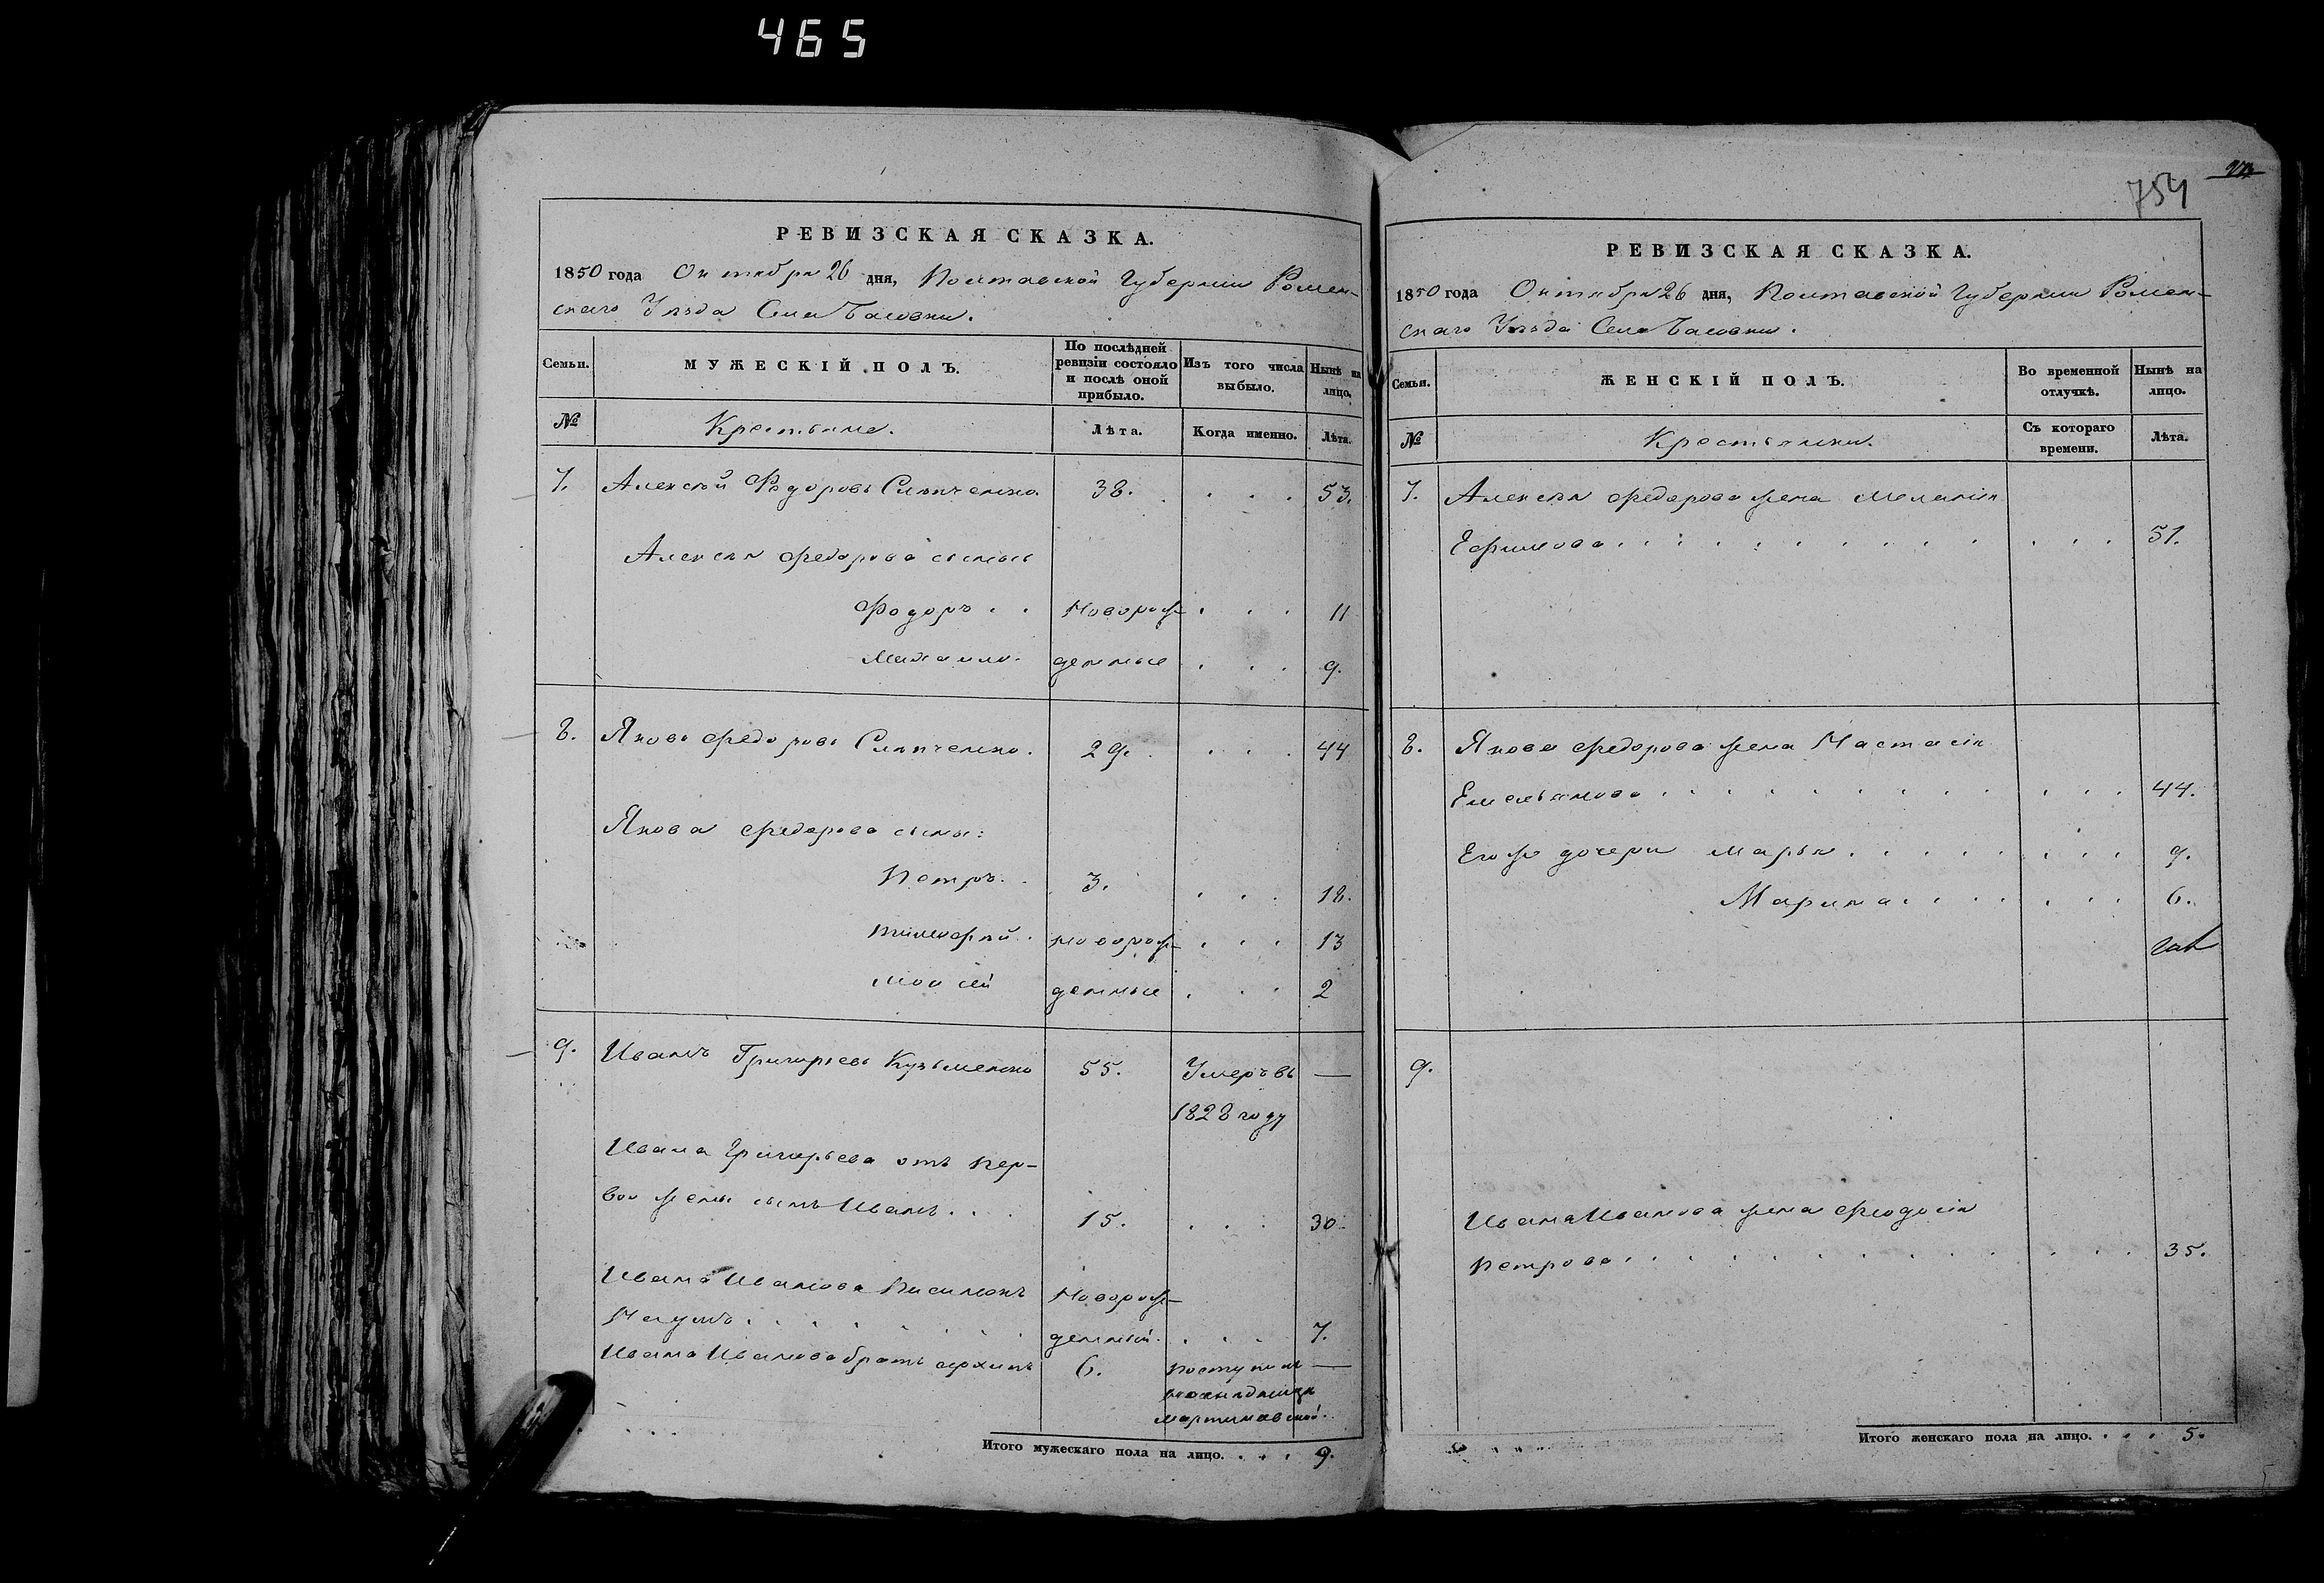 465
РЕВИЗСКАЯ СКАЗКА.
1850 года Октября 26 дня, Полтавской Губернии Ромен-
скаго Уѣзда Села Басовки.
Семьи.
МУЖЕСКІЙ ПОЛЪ.
По послѣдней ревизіи состояло и послѣ оной прибыло.
Изъ того числа выбыло.
Нынѣ на лицо.
№
Крестьяне.
Лѣта.
Когда именно.
Лѣта.
7. Алексѣй Федоровъ Слипченко 38. . . . 53.
Алексѣя Федорова сыновья
Федоръ . . Новорож- . . . 11
Михайло. денные . . . 9.
8. Яковъ Федоровъ Слипченко. 29. . . . 44
Якова Федорова сыны:
Петръ. . 3. . . . 18.
Тимофѣй . новорож- . . . 13
Моисей денные . . . 2
9. Иванъ Григорьевъ Кузьменко 55. Умеръ въ —
1828 году
Ивана Григорьева отъ пер-
вой жены сынъ Иванъ . . . 15. . . . 30.
Ивана Иванова Новорож-
Наумъ . . . . . . денный. . . . 7.
Ивана Иванова братъ 6. поступилъ —
Итого мужескаго пола на лицо. . . . 9.
754
РЕВИЗСКАЯ СКАЗКА.
1850 года Октября 26 дня, Полтавской Губернии Ромен-
скаго Уѣзда Села Басовки.
Семьи.
ЖЕНСКІЙ ПОЛЪ.
Во временной отлучкѣ.
Нынѣ на лицо.
№
Крестьянки.
Съ котораго времени.
Лѣта.
7. Алексѣя Федорова жена Меланія
Ефимова . . . . . . . . . . . . . 51.
8. Якова Федорова жена Настасія
Емельянова . . . . . . . . . . . . 44.
Его же дочери Марья . . . . . . . . . 9.
Марина . . . . . . . . 6.
9.
Ивана Иванова жена Феодосія
Петрова . . . . . . . . . . . . . 35.
Итого женскаго пола на лицо. . . . 5.